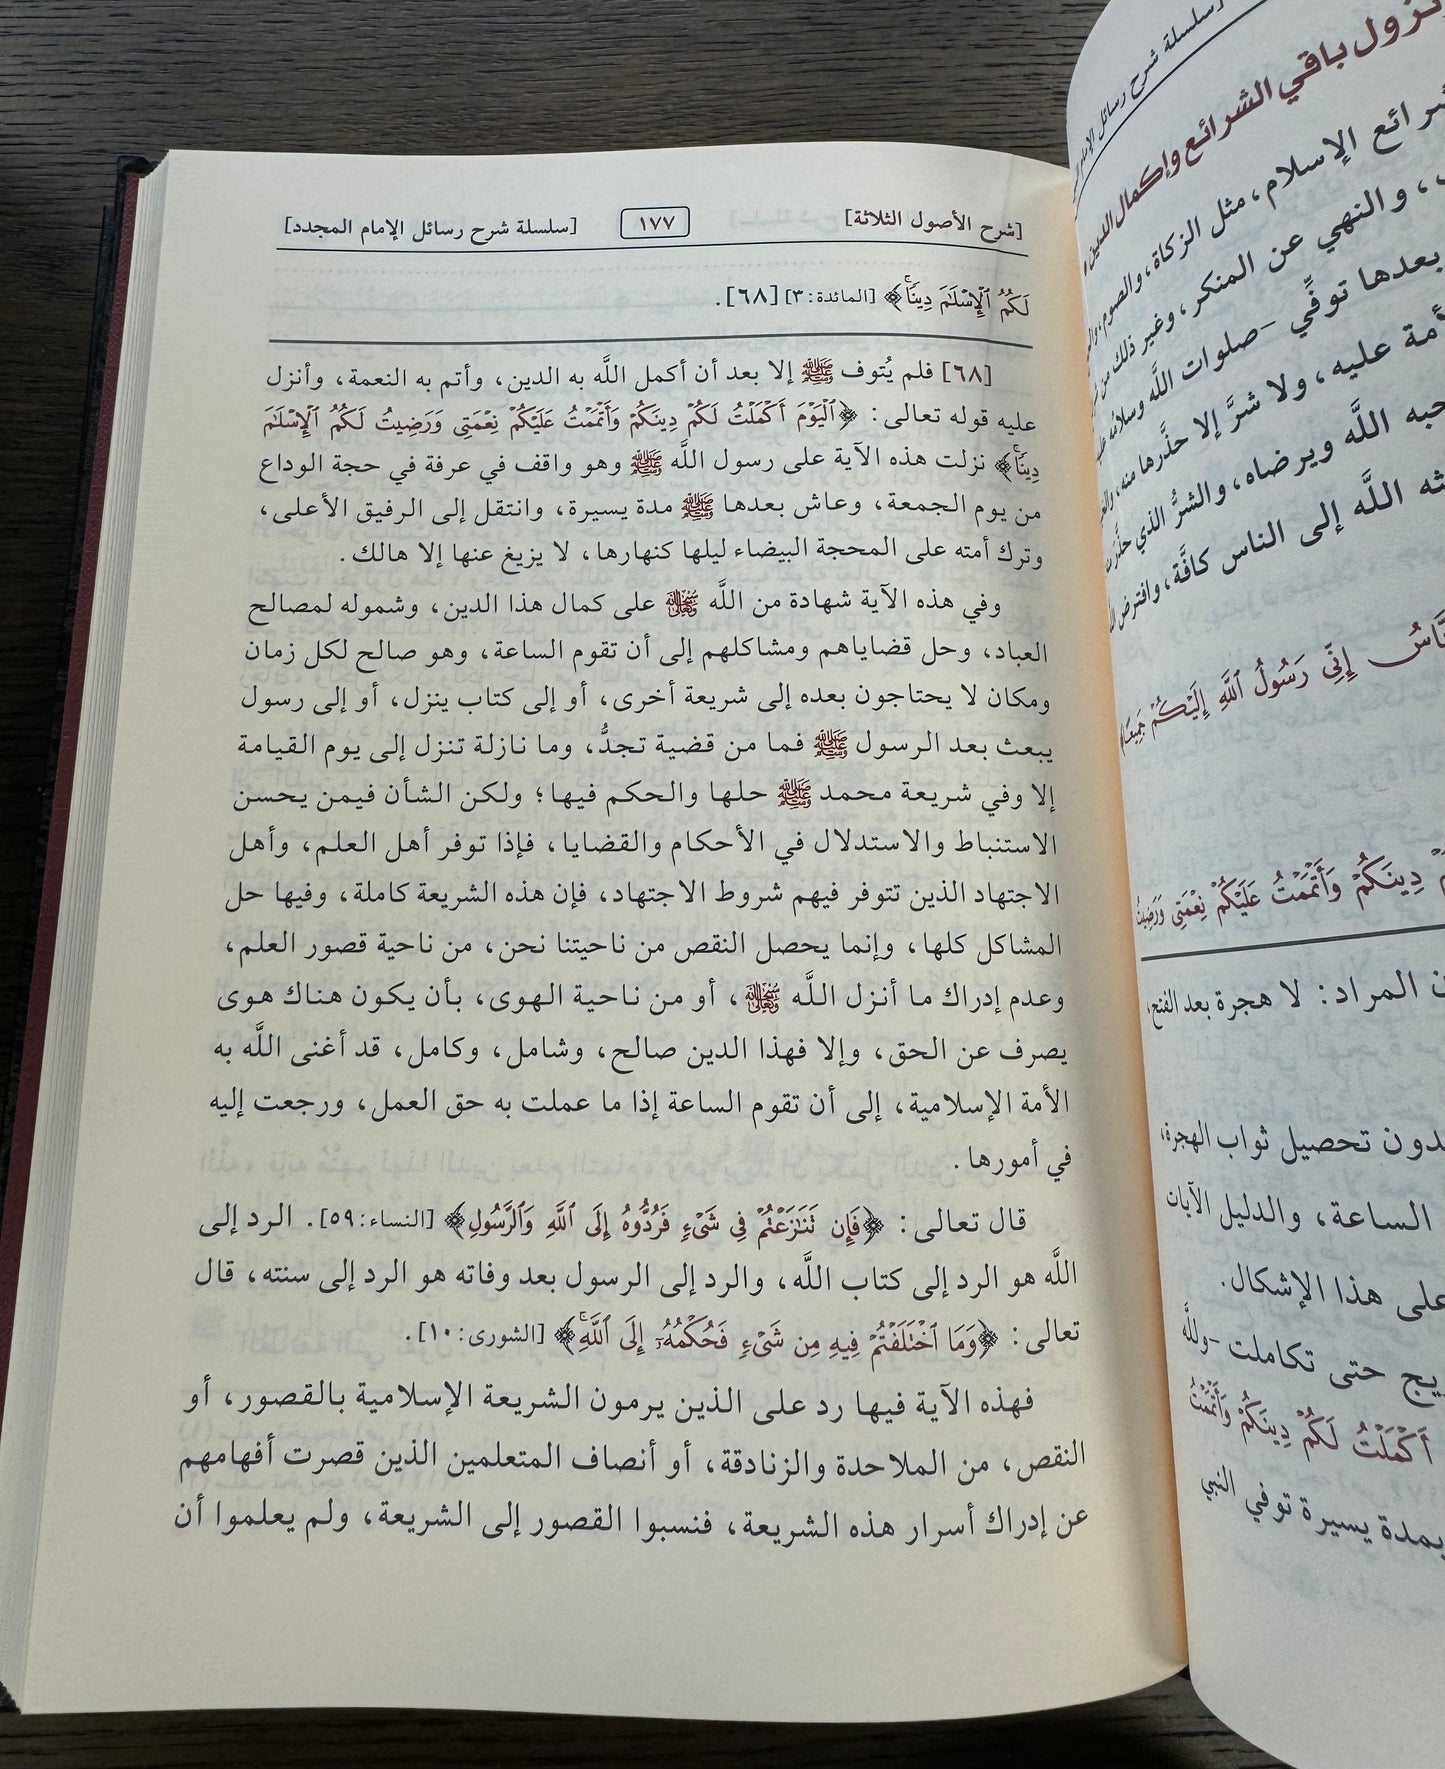 [شرح الأصول الثلاثة] ١٧٧ [سلسلة شرح رسائل الإمام المجدد]
لَكُمُ ٱلْإِسْلَٰمَ دِينًاۚ﴾ [المائدة: ٣] [٦٨].
[٦٨] فلم يُتوف ﷺ إلا بعد أن أكمل اللَّه به الدين، وأتم به النعمة، وأنزل
عليه قوله تعالى: ﴿ٱلْيَوْمَ أَكْمَلْتُ لَكُمْ دِينَكُمْ وَأَتْمَمْتُ عَلَيْكُمْ نِعْمَتِى وَرَضِيتُ لَكُمُ ٱلْإِسْلَٰمَ
دِينًاۚ﴾ نزلت هذه الآية على رسول اللَّه ﷺ وهو واقف في عرفة في حجة الوداع
من يوم الجمعة، وعاش بعدها ﷺ مدة يسيرة، وانتقل إلى الرفيق الأعلى،
وترك أمته على المحجة البيضاء ليلها كنهارها، لا يزيغ عنها إلا هالك.
وفي هذه الآية شهادة من اللَّه على كمال هذا الدين، وشموله لمصالح
العباد، وحل قضاياهم ومشاكلهم إلى أن تقوم الساعة، وهو صالح لكل زمان
ومكان لا يحتاجون بعده إلى شريعة أخرى، أو إلى كتاب ينزل، أو إلى رسول
يبعث بعد الرسول ﷺ فما من قضية تجدُّ، وما نازلة تنزل إلى يوم القيامة
إلا وفي شريعة محمد ﷺ حلها والحكم فيها؛ ولكن الشأن فيمن يحسن
الاستنباط والاستدلال في الأحكام والقضايا، فإذا توفر أهل العلم، وأهل
الاجتهاد الذين تتوفر فيهم شروط الاجتهاد، فإن هذه الشريعة كاملة، وفيها حل
المشاكل كلها، وإنما يحصل النقص من ناحيتنا نحن، من ناحية قصور العلم،
وعدم إدراك ما أنزل اللَّه ، أو من ناحية الهوى، بأن يكون هناك هوى
يصرف عن الحق، وإلا فهذا الدين صالح، وشامل، وكامل، قد أغنى اللَّه به
الأمة الإسلامية، إلى أن تقوم الساعة إذا ما عملت به حق العمل، ورجعت إليه
في أمورها.
قال تعالى: ﴿فَإِن تَنَٰزَعْتُمْ فِى شَىْءٍ فَرُدُّوهُ إِلَى ٱللَّهِ وَٱلرَّسُولِ﴾ [النساء: ٥٩]. الرد إلى
اللَّه هو الرد إلى كتاب اللَّه، والرد إلى الرسول بعد وفاته هو الرد إلى سنته، قال
تعالى: ﴿وَمَا ٱخْتَلَفْتُمْ فِيهِ مِن شَىْءٍ فَحُكْمُهُۥٓ إِلَى ٱللَّهِۚ﴾ [الشورى: ١٠].
فهذه الآية فيها رد على الذين يرمون الشريعة الإسلامية بالقصور، أو
النقص، من الملاحدة والزنادقة، أو أنصاف المتعلمين الذين قصرت أفهامهم
عن إدراك أسرار هذه الشريعة، فنسبوا القصور إلى الشريعة، ولم يعلموا أن
سلسلة شرح رسائل الإمام
نزول باقي الشرائع وإكمال الدين
شرائع الإسلام، مثل الزكاة، والصوم،
، والنهي عن المنكر، وغير ذلك من
بعدها توفِّي -صلوات اللَّه وسلامه
أمة عليه، ولا شرَّ إلا حذَّرها منه،
اللَّه ويرضاه، والشرُّ الذي حذَّر
اللَّه إلى الناس كافَّة، وافترض
إِنِّى رَسُولُ ٱللَّهِ إِلَيْكُمْ جَمِيعًا
دِينَكُمْ وَأَتْمَمْتُ عَلَيْكُمْ نِعْمَتِى وَرَضِيتُ
المراد: لا هجرة بعد الفتح،
تحصيل ثواب الهجرة،
الساعة، والدليل الآيات
على هذا الإشكال.
حتى تكاملت -وللَّه
أَكْمَلْتُ لَكُمْ دِينَكُمْ وَأَتْمَمْتُ
بمدة يسيرة توفي النبي